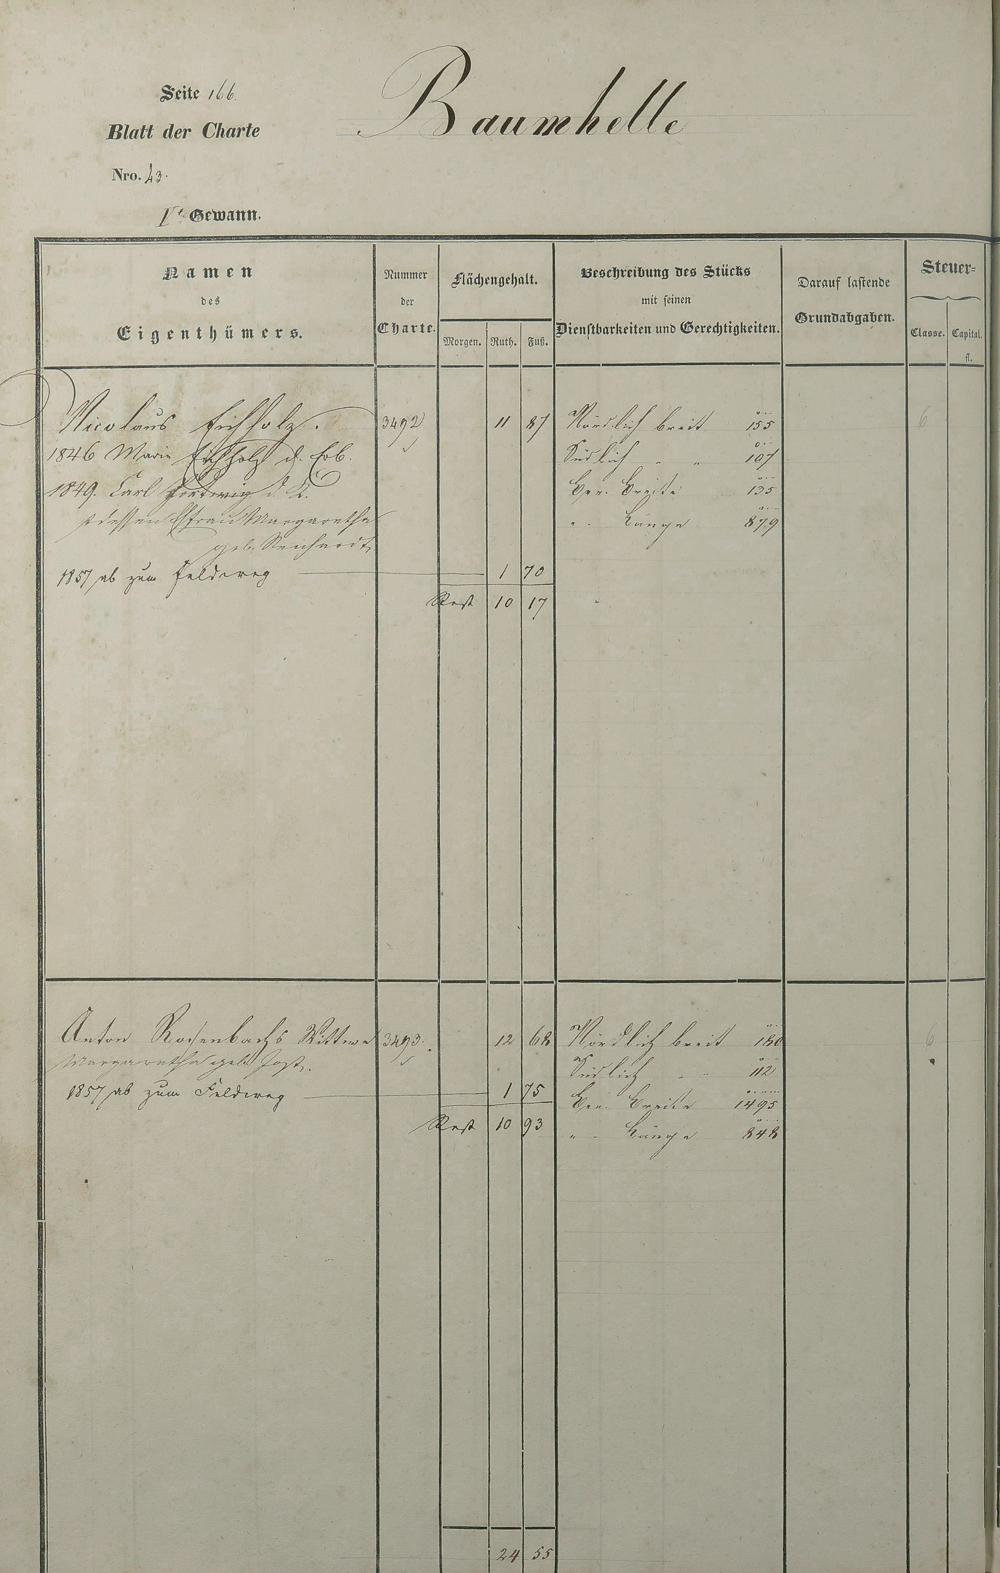 Seite 166.
Baumhelle
Blatt der Charte
Nro. 43.
1te Gewann.
Namen des Eigenthümers.
Nummer der Charte.
Flächengehalt.
Morgen. Ruth. Fuß.
Beschreibung des Stücks mit seinen Dienstbarkeiten und Gerechtigkeiten.
Darauf lastende Grundabgaben.
Steuer-
Classe. Capital. fl.
Nicolaus Eichholz. 3492 11 87 Nördlich breit 155 6
1846 Marie Eichholz d. Erb. Südlich " " 107
1849. Carl d. K. Ger. Breite 135
dessen Efrau Margaretha " Länge 879
geb. Renhardt
1857 ab zum Feldweg 1 70
Rest 10 17
Anton Rosenbachs Wittwe 3493. 12 68 Nördlich breit 180 6
Margaretha geb. Jost. Südlich " " 112
1857 ab zum Feldweg 1 75 Ger. Breite 1495
Rest 10 93 " Länge 848
24 55